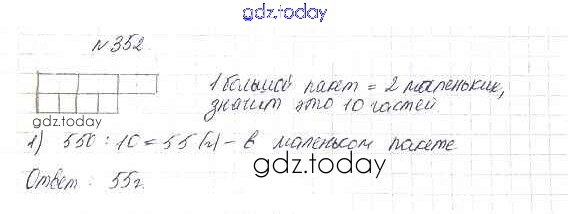 gdz.today
№352
1 большой пакет = 2 маленьких,
значит это 10 частей
gdz.today
1) 550 : 10 = 55 (г) - в маленьком пакете
gdz.today
Ответ : 55г.